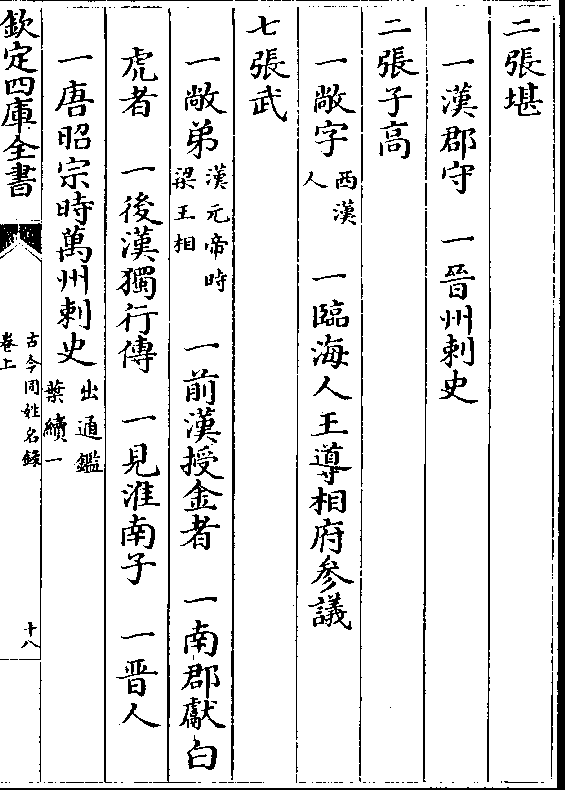 二張堪
一漢郡守　一晉州刺史
二張子高
一敞字西漢人　一臨海人王導相府參議
七張武
一敞弟漢元帝時梁王相　一前漢授金者　一南郡獻白
虎者　一後漢獨行傳　一見淮南子　一晉人
一唐昭宗時萬州刺史出通鑑葉續一
欽定四庫全書
古今同姓名錄
卷上
十八